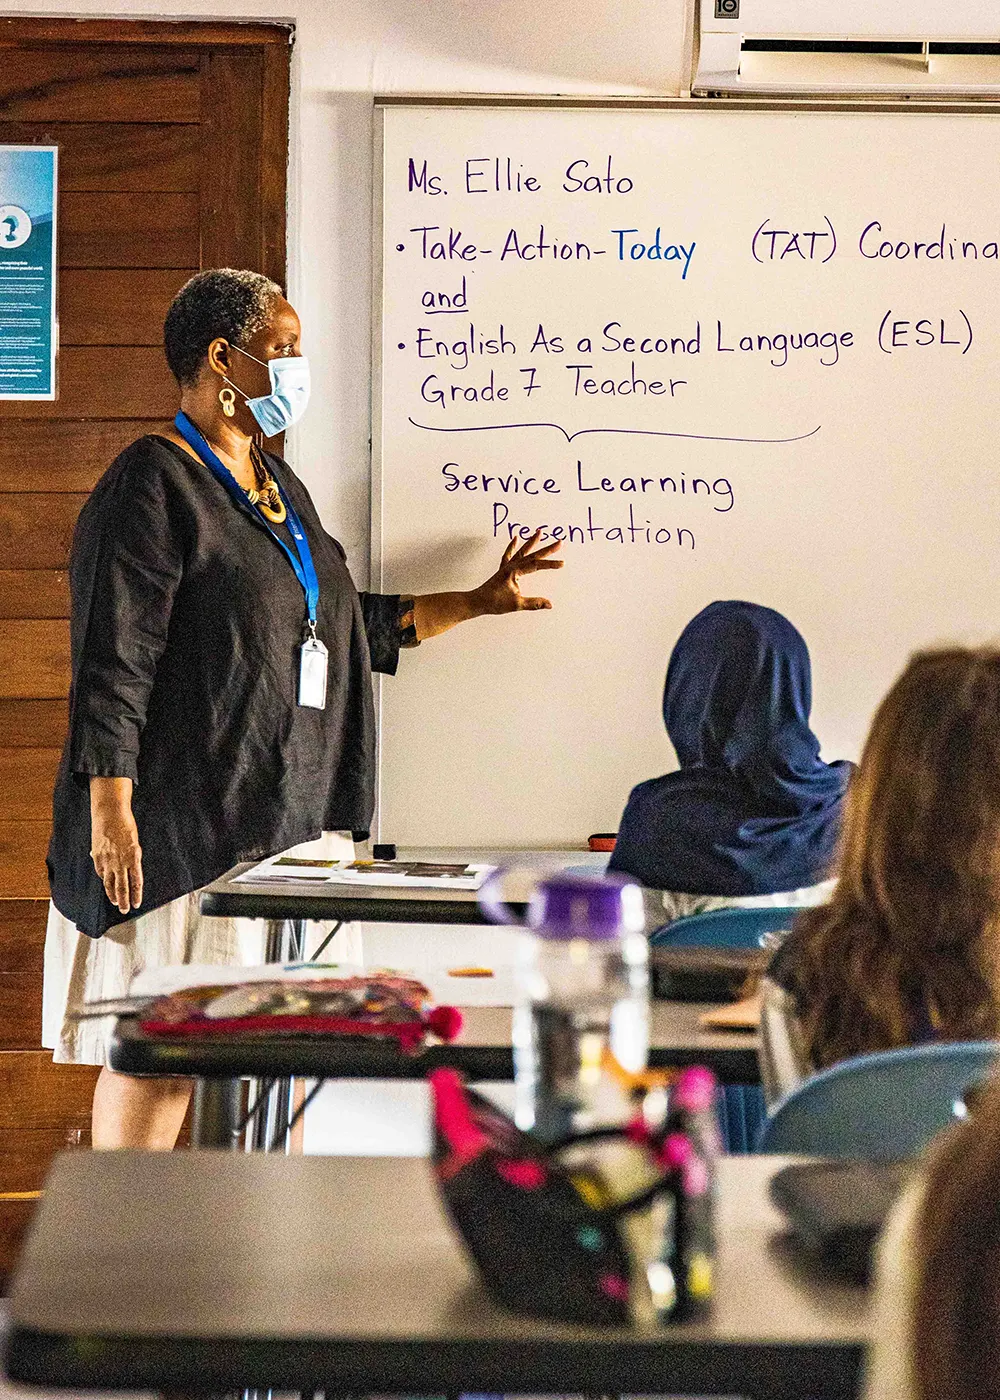 10
Ms. Ellie Sato
• Take-Action-Today (TAT) Coordina
and
• English As a Second Language (ESL)
Grade 7 Teacher
Service Learning
Presentation